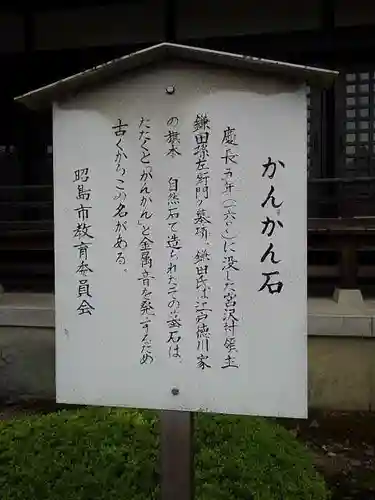 かんかん石
慶長五年(一六〇〇)に没した宮沢村領主
鎌田孫左衛門の墓碑。鎌田氏は江戸徳川家
の旗本 自然石で造られたこの墓石は、
たたくと「かんかん」と金属音を発するため
古くからこの名がある。
昭島市教育委員会